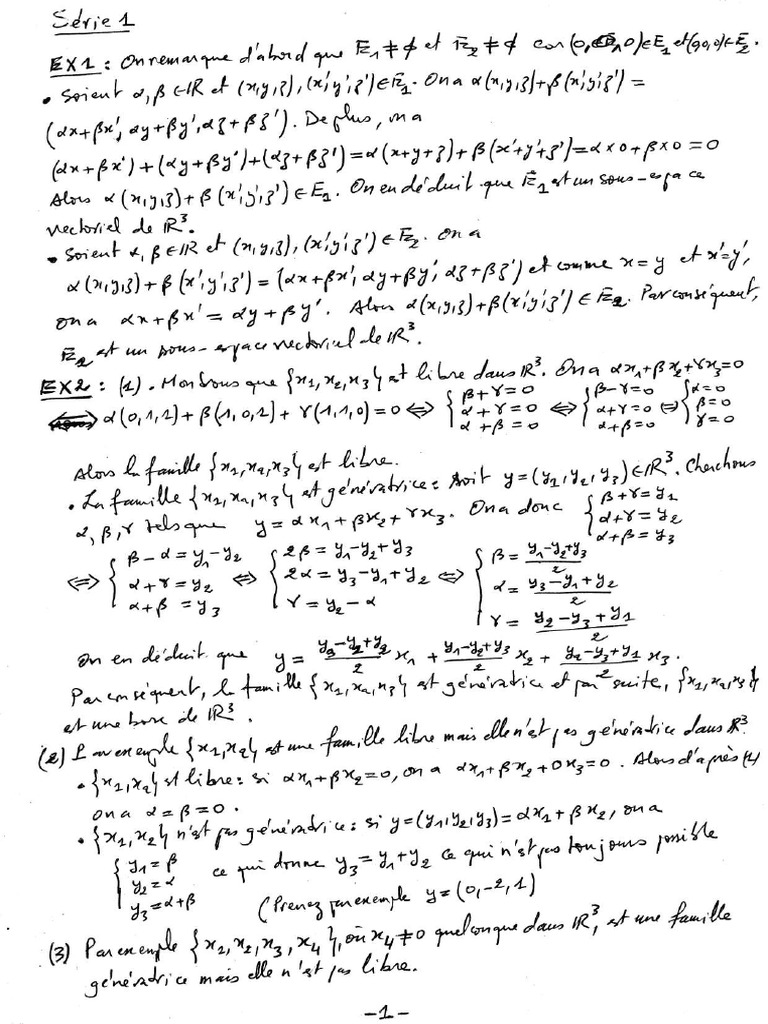 Série 1
EX1 : On remarque d'abord que E₁ ≠ ∅ et E₂ ≠ ∅ car (0,0,0)∈E₁ et (0,0,0)∈E₂.
• Soient α, β ∈ IR et (x,y,z), (x',y',z') ∈ E₁. On a α(x,y,z)+β(x',y',z') =
(αx+βx', αy+βy', αz+βz'). De plus, on a
(αx+βx')+(αy+βy')+(αz+βz') = α(x+y+z)+β(x'+y'+z') = α×0+β×0 = 0
Alors α(x,y,z)+β(x',y',z') ∈ E₁. On en déduit que E₁ est un sous-espace
vectoriel de IR³.
• Soient α, β ∈ IR et (x,y,z), (x',y',z') ∈ E₂. On a
α(x,y,z)+β(x',y',z') = (αx+βx', αy+βy', αz+βz') et comme x=y et x'=y',
on a αx+βx' = αy+βy'. Alors α(x,y,z)+β(x',y',z') ∈ E₂. Par conséquent,
E₂ est un sous-espace vectoriel de IR³.
EX2 : (1). Montrons que {x₁,x₂,x₃} est libre dans IR³. On a αx₁+βx₂+γx₃=0
⟺ α(0,1,1)+β(1,0,1)+γ(1,1,0)=0 ⟺ { β+γ=0 α+γ=0 α+β=0 ⟺ { β-γ=0 α+γ=0 α+β=0 ⟺ { α=0 β=0 γ=0
Alors la famille {x₁,x₂,x₃} est libre.
• La famille {x₁,x₂,x₃} est génératrice : soit y=(y₁,y₂,y₃)∈IR³. Cherchons
α, β, γ tels que y = αx₁+βx₂+γx₃. On a donc { β+γ=y₁ α+γ=y₂ α+β=y₃
⟺ { β-α=y₁-y₂ α+γ=y₂ α+β=y₃ ⟺ { 2β=y₁-y₂+y₃ 2α=y₃-y₁+y₂ γ=y₂-α ⟺ { β=(y₁-y₂+y₃)/2 α=(y₃-y₁+y₂)/2 γ=(y₂-y₃+y₁)/2
On en déduit que y = (y₃-y₁+y₂)/2 x₁ + (y₁-y₂+y₃)/2 x₂ + (y₂-y₃+y₁)/2 x₃.
Par conséquent, la famille {x₁,x₂,x₃} est génératrice et par suite, {x₁,x₂,x₃}
est une base de IR³.
(2) Par exemple {x₁,x₂} est une famille libre mais elle n'est pas génératrice dans IR³.
• {x₁,x₂} est libre : si αx₁+βx₂=0, on a αx₁+βx₂+0x₃=0. Alors d'après (1)
on a α=β=0.
• {x₁,x₂} n'est pas génératrice : si y=(y₁,y₂,y₃)=αx₁+βx₂, on a
{ y₁=β y₂=α y₃=α+β ce qui donne y₃=y₁+y₂ ce qui n'est pas toujours possible
(Prenez par exemple y=(0,-2,1)
(3) Par exemple {x₁,x₂,x₃,x₄}, où x₄≠0 quelconque dans IR³, est une famille
génératrice mais elle n'est pas libre.
-1-